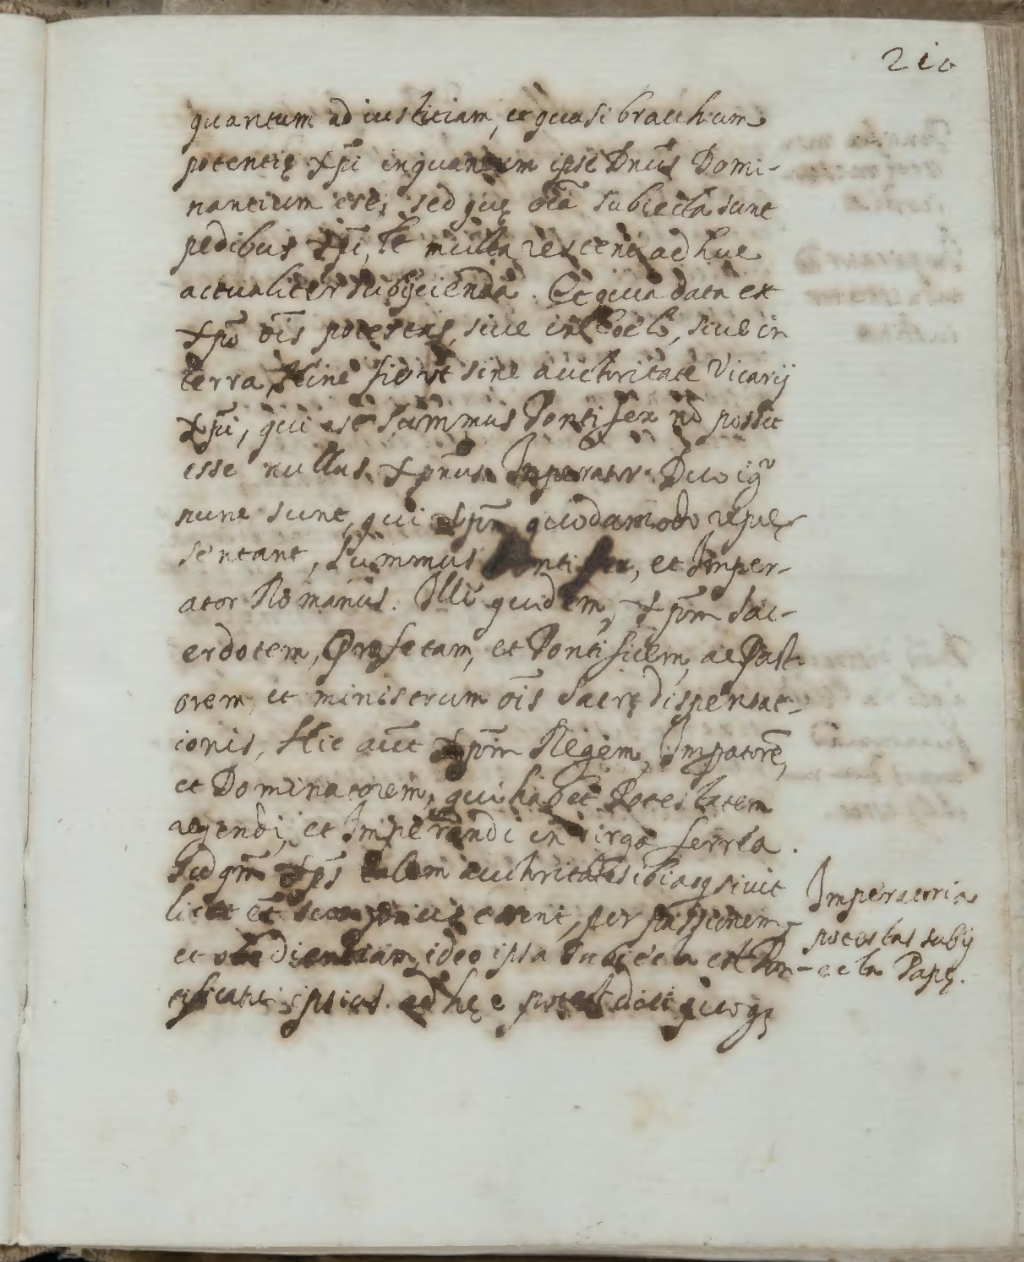 210
quantum ad iusticiam, et quasi bracchium
potentię Xp̃i inquantum ipse Dñus Domi-
nantium est, sed quę oĩa subiecta sunt
pedibus Xp̃i, multa adhuc
actualiter subijcienda. Et quia data est
Xp̃o oĩs potestas, siue in Coelo, siue in
terra, Hinc sine aucthoritate Vicarij
Xp̃i, qui est Summus Pontifex nõ possit
esse nullus Xp̃nus Imperator. Duo igr̃
nunc sunt, qui Xp̃m quodamodo repręs
sentant, Summus Pontifex, et Imper-
ator Romanus. Ille quidem, Xp̃m Sac-
erdotem, Profetam, et Pontificem, ac Past-
orem, et ministrum oĩs Sacrę dispensat-
ionis, Hic aũt Xp̃m Regem, Impatorẽ,
et Dominatorem, qui habet Potestatem
regendi, et Imperandi in virga ferrea.
Sed qm̃ Xp̃s talem aucthoritatem sibi acqsiuit
licet et carent, per passionem,
et obedientiam, ideo ipsa Subiecta est Pon-
tificatui ipsius. ad hęc potest dici quoqȝ
Imperatoria
potestas subij
ecta Papę.